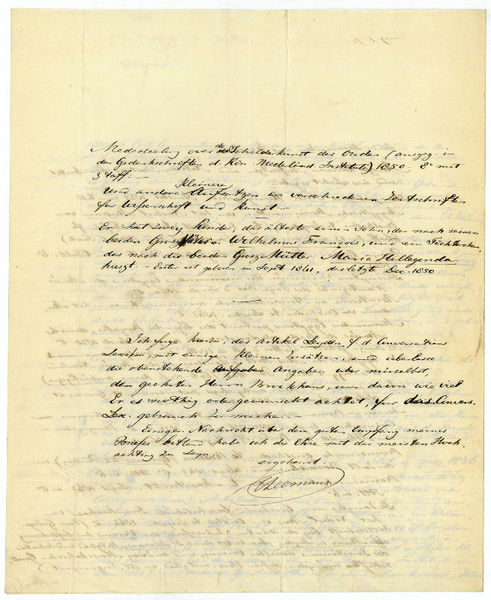 Mededeeling over de Schilderkunst der Ouden (uitgeg. in
den Gedenkschriften d. Kön. Nederländ. Instituts) 1850. 8° mit
3 taff. —
und andere kleinere Aufsätze in verschiedenen Zeitschriften
für Wissenschaft und Kunst. —
Er hat zwey Kinder, das älteste einen Sohn, der nach seinen
beiden Großvätern Wilhelmus François, und ein Töchterchen,
das nach die beiden Groszmütter Maria Hillegonda
heiszt — Erster ist geboren in Sept 1841, das letzte Dec. 1850
Ich füge hierin, des Artikel Leyden f. d. Conversations
Lexikon, mit einige kleinen Zusätzen, und überlasse
die obenstehende Angaben über mirselbst,
dem geehrten Herrn Brockhaus, um davon wie viel
Er es nöthig oder gewünscht achtet, für das Convers.
Lex. gebrauch zu machen. —
Einigen Nachricht über den guten Empfang meines
Briefes habe ich die Ehre mit der meisten Hoch-
achtung zu
ergebenst
Leemans